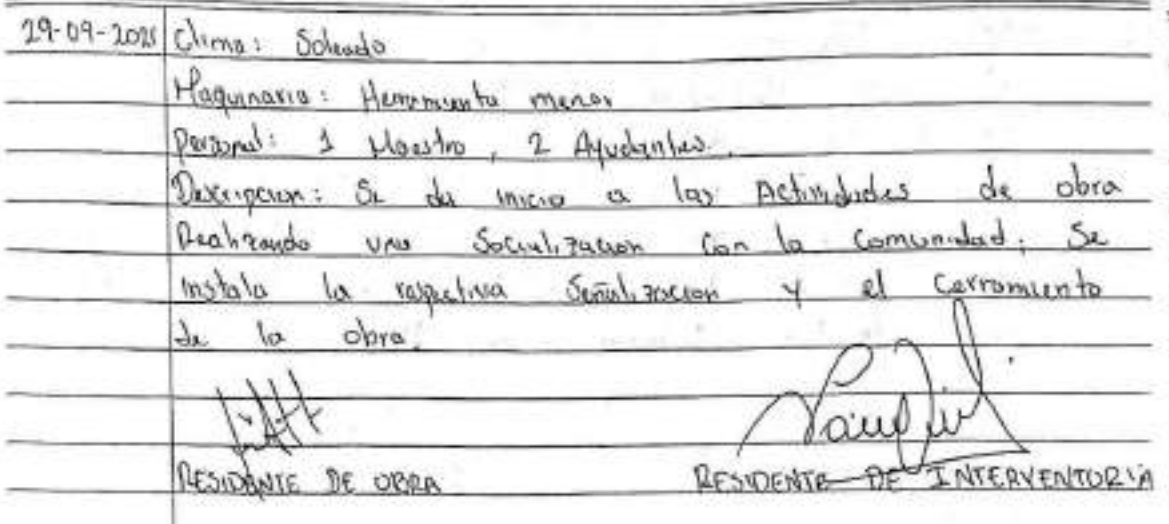 29-09-2021 Clima: Soleado
Maquinaria: Herramienta menor
Personal: 1 Maestro, 2 Ayudantes.
Descripcion: Se da inicio a las Actividades de obra
Realizando una Socialización con la Comunidad. Se
instala la respectiva Señalizacion y el Cerramiento
de la obra.
RESIDENTE DE OBRA RESIDENTE DE INTERVENTORIA